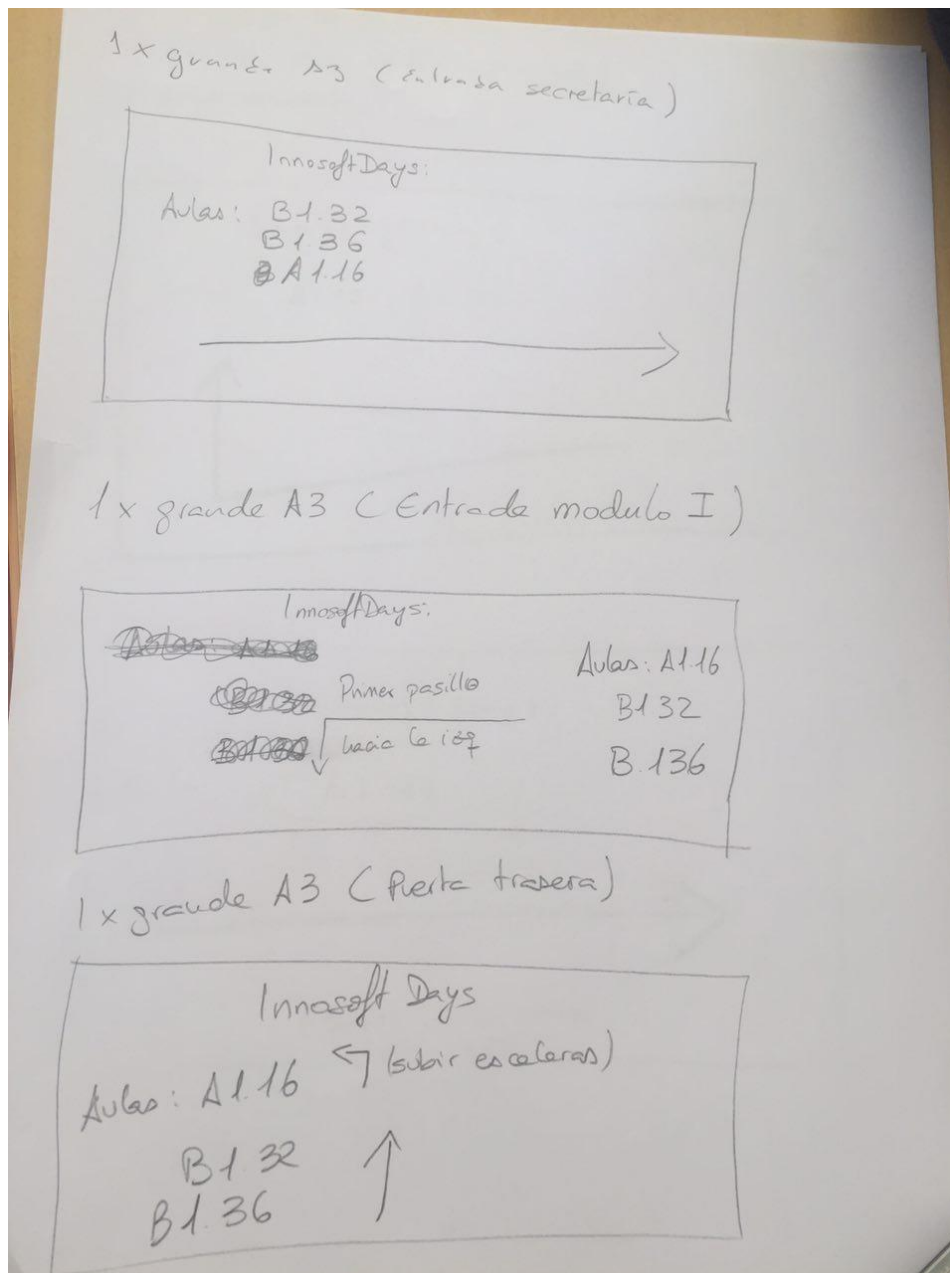 1 x grande A3 (Entrada secretaría)
InnosoftDays:
Aulas: B1.32
B1 36
A1.16
1 x grande A3 (Entrada modulo I)
InnosoftDays:
Primer pasillo
hacia la izq
Aulas: A1.16
B1 32
B.136
1 x grande A3 (Puerta trasera)
Innosoft Days
Aulas: A1.16 (subir escaleras)
B1.32
B1.36